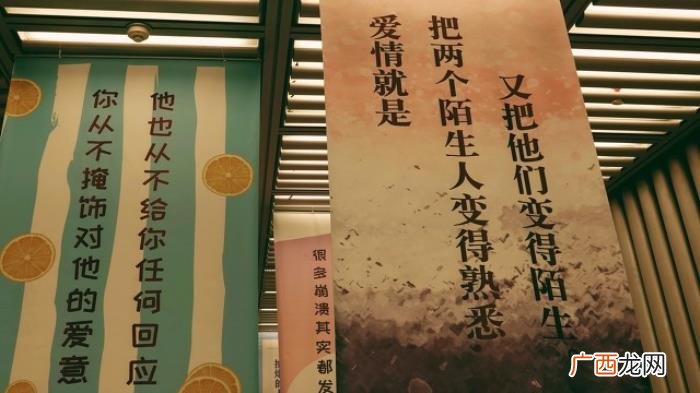 你从不掩饰对他的爱意
他也从不给你任何回应
很多崩溃其实都发
爱情就是
把两个陌生人变得熟悉
又把他们变得陌生
广西龙网